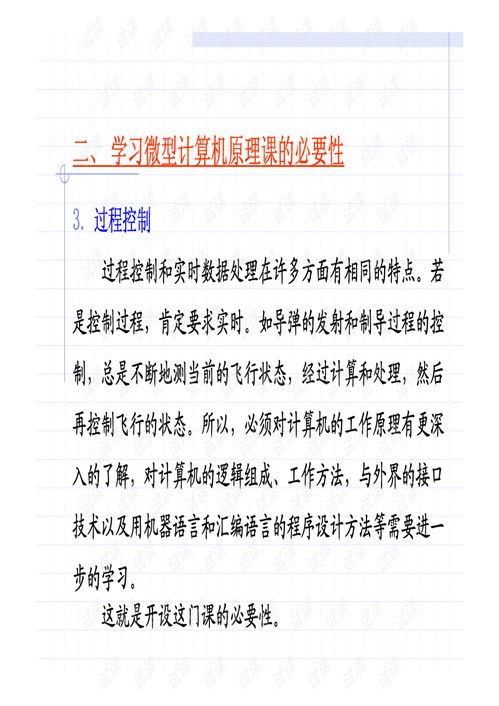 二、学习微型计算机原理课的必要性
3. 过程控制
过程控制和实时数据处理在许多方面有相同的特点。若
是控制过程，肯定要求实时。如导弹的发射和制导过程的控
制，总是不断地测当前的飞行状态，经过计算和处理，然后
再控制飞行的状态。所以，必须对计算机的工作原理有更深
入的了解，对计算机的逻辑组成、工作方法，与外界的接口
技术以及用机器语言和汇编语言的程序设计方法等需要进一
步的学习。
这就是开设这门课的必要性。